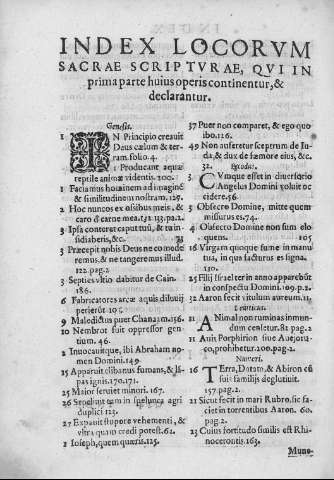 INDEX LOCORVM
SACRAE SCRIPTVRAE, QVI IN
prima parte huius operis continentur, &
declarantur.
Genesis.
1 IN Principio creauit
Deus cælum & ter-
ram. folio. 4.
1 Producant aquæ
reptile animæ videntis. 200.
1 Faciamus hominem ad imaginẽ
& similitudinem nostram. 127.
2 Hoc nuncos ex ossibus meis, &
caro de carne mea. 132. 133. pa. 2.
3 Ipsa conteret caput tuũ, & tu in-
sidiaberis, &c.
3 Præcepit nobis Deus ne come
remus, & ne tangeremus illud.
122. pag. 2
3 Septies vltio dabitur de Cain.
186.
6 Fabricatores arcæ aquis diluuij
perierũt 105.
9 Maledictus puer Chanaam. 156.
10 Nembrot fuit oppressor gen-
tium. 46.
2 Inuocauitque, ibi Abraham no-
men Domini. 149.
15 Apparuit clibanus fumans, & lã
pas ignis. 170. 171.
25 Maior seruiet minori. 167.
26 in spelunca agri
duplici 123.
27 Expauit stupore vehementi, &
vltra quam credi potest. 62.
2 Ioseph, quem quæris. 125.
37 Puer non comparet, & ego quo
ibo. 126.
49 Non auferetur sceptrum de Iu-
da, & dux de fæmore eius, &c.
32. Exodi.
3 CVmque esset in diuersorio
Angelus Domini voluit oc
cidere. 56.
3 Obsecro Domine, mitte quem
missurus es. 74.
4 Obsecro Domine non sum elo
quens. 105.
16 Virgam quoque sume in manu
tua, in qua facturus es signa.
150.
25 Filij Israel ter in anno apparebũt
in conspectu Domini. 109. p. 2.
32 Aaron fecit vitulum aureum. 11.
Leuitici.
11 ANimal non ruminans inmun-
dum censetur. 81 pag. 2
11 Auis Porphirion siue
co, prohibetur. 200. pag. 2.
Numeri.
16 TErra, Datan, & Abiron cũ
suis familijs deglutiuit.
157. pag. 2.
21 Sicut fecit in mari Rubro, sic fa-
ciet in torrentibus Aaron. 60.
pag. 2.
23 Cuius fortitudo similis est Rhi-
nocerontis. 163.
Mune-